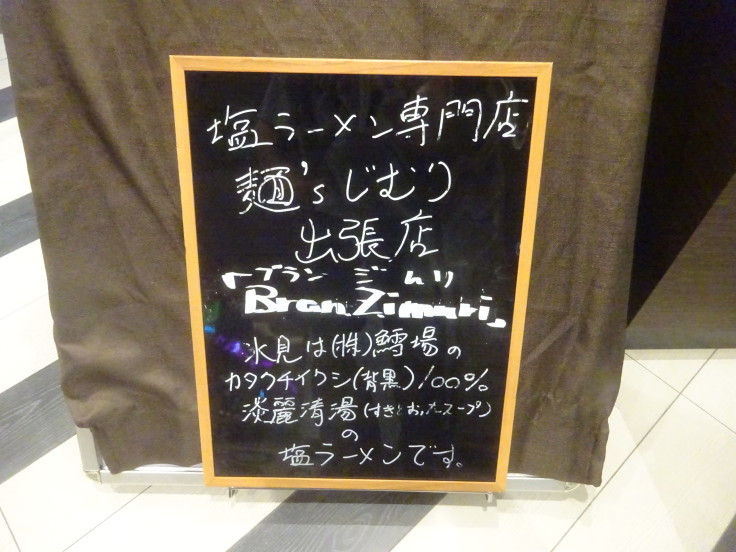 塩ラーメン専門店
麺'sじむり
出張店
「ブラン ジムリ
Bran Zimuri」
氷見は(株)鱈場の
カタクチイワシ(背黒)100%
淡麗清湯(すきとおったスープ)
の
塩ラーメンです。